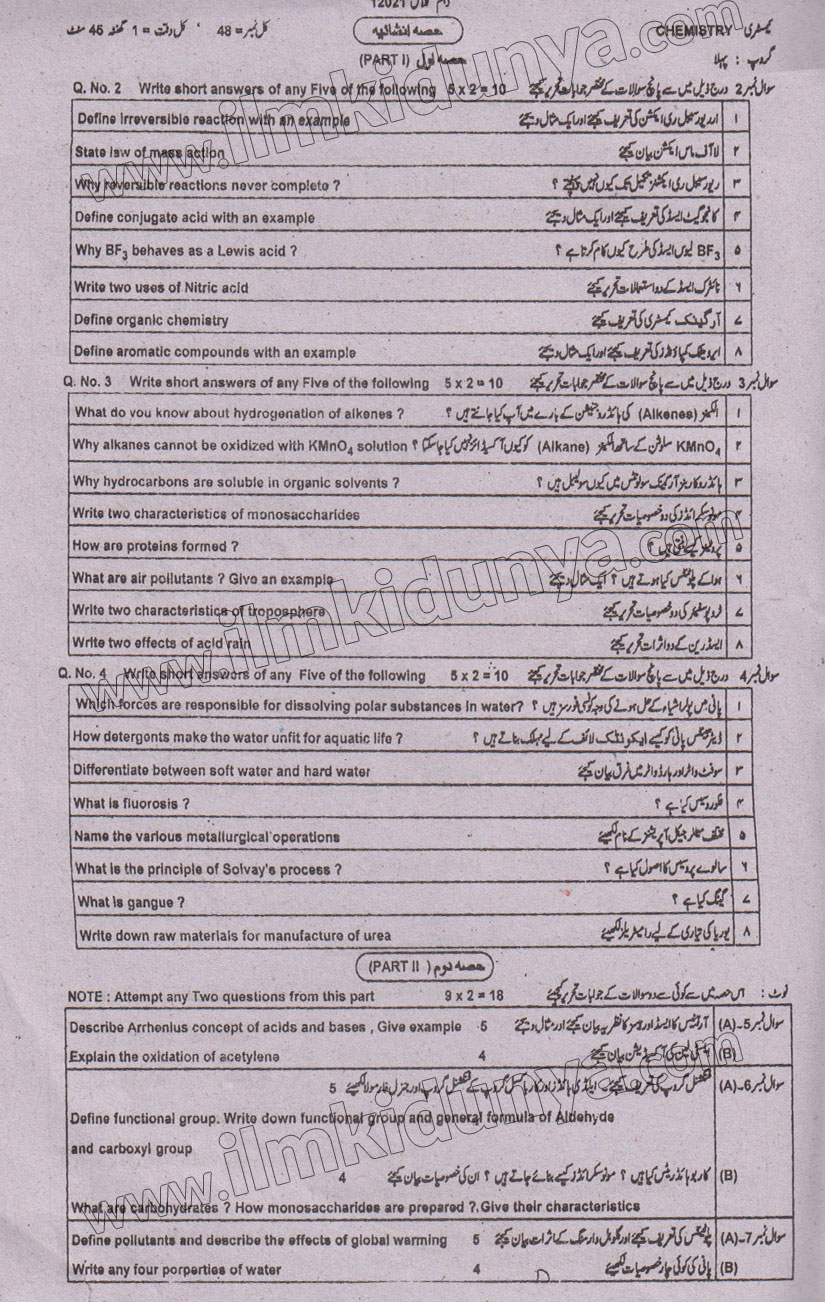 دہم کلاس 12021
CHEMISTRY کیمسٹری حصہ انشائیہ کل نمبر = 48 ، کل وقت = 1 گھنٹہ 45 منٹ
گروپ : پہلا حصہ اول (PART I)
Q. No. 2 Write short answers of any Five of the following 5 x 2 = 10 سوال نمبر 2 درج ذیل میں سے پانچ سوالات کے مختصر جوابات تحریر کیجئے
Define irreversible reaction with an example ارریورسیبل ری ایکشن کی تعریف کیجئے اور ایک مثال دیجئے ۱
State law of mass action لا آف ماس ایکشن بیان کیجئے ۲
Why reversible reactions never complete ? ریورسیبل ری ایکشنز تکمیل تک کیوں نہیں پہنچتے ؟ ۳
Define conjugate acid with an example کانجوگیٹ ایسڈ کی تعریف کیجئے اور ایک مثال دیجئے ۴
Why BF3 behaves as a Lewis acid ? BF3 لیوس ایسڈ کی طرح کیوں کام کرتا ہے ؟ ۵
Write two uses of Nitric acid نائٹرک ایسڈ کے دو استعمالات تحریر کیجئے ۶
Define organic chemistry آرگینک کیمسٹری کی تعریف کیجئے ۷
Define aromatic compounds with an example ایرومیٹک کمپاؤنڈز کی تعریف کیجئے اور ایک مثال دیجئے ۸
Q. No. 3 Write short answers of any Five of the following 5 x 2 = 10 سوال نمبر 3 درج ذیل میں سے پانچ سوالات کے مختصر جوابات تحریر کیجئے
What do you know about hydrogenation of alkenes ? الکینز (Alkenes) کی ہائڈروجنیشن کے بارے میں آپ کیا جانتے ہیں ؟ ۱
Why alkanes cannot be oxidized with KMnO4 solution ? KMnO4 سلوشن کے ساتھ الکینز (Alkane) کو کیوں آکسیڈائز نہیں کیا جا سکتا ؟ ۲
Why hydrocarbons are soluble in organic solvents ? ہائڈروکاربنز آرگینک سولوینٹس میں کیوں سولیوبل ہیں ؟ ۳
Write two characteristics of monosaccharides مونوسکرائڈز کی دو خصوصیات تحریر کیجئے ۴
How are proteins formed ? پروٹینز کیسے بنتی ہیں ؟ ۵
What are air pollutants ? Give an example ہوا کے پلوٹنٹس کیا ہوتے ہیں ؟ ایک مثال دیجئے ۶
Write two characteristics of troposphere ٹروپوسفیئر کی دو خصوصیات تحریر کیجئے ۷
Write two effects of acid rain ایسڈ رین کے دو اثرات تحریر کیجئے ۸
Q. No. 4 Write short answers of any Five of the following 5 x 2 = 10 سوال نمبر 4 درج ذیل میں سے پانچ سوالات کے مختصر جوابات تحریر کیجئے
Which forces are responsible for dissolving polar substances in water? پانی میں پولر اشیاء کے حل ہونے کی وجہ کونسی فورسز ہیں ؟ ۱
How detergents make the water unfit for aquatic life ? ڈیٹرجینٹس پانی کو کیسے ایکوئیٹک لائف کے لیے مہلک بناتے ہیں ؟ ۲
Differentiate between soft water and hard water سوفٹ واٹر اور ہارڈ واٹر میں فرق بیان کیجئے ۳
What is fluorosis ? فلوروسس کیا ہے ؟ ۴
Name the various metallurgical operations مختلف میٹلرجیکل آپریشنز کے نام لکھیئے ۵
What is the principle of Solvay's process ? سالوے پروسیس کا اصول کیا ہے ؟ ۶
What is gangue ? گینگ کیا ہے ؟ ۷
Write down raw materials for manufacture of urea یوریا کی تیاری کے لیے را میٹریلز لکھیئے ۸
حصہ دوم (PART II)
NOTE : Attempt any Two questions from this part 9 x 2 = 18 نوٹ : اس حصہ میں سے کوئی سے دو سوالات کے جوابات تحریر کیجئے
Describe Arrhenius concept of acids and bases , Give example 5 آرہینیس کا ایسڈ اور بیسز کا نظریہ بیان کیجئے اور مثال دیجئے (A)۔سوال نمبر 5
Explain the oxidation of acetylene 4 ایسیٹی لین کی آکسیڈیشن بیان کیجئے (B)
فنکشنل گروپ کی تعریف کیجئے۔ ایلڈی ہائڈز اور کاربوکسل گروپ کے فنکشنل گروپ اور جنرل فارمولا لکھیئے 5 (A)۔سوال نمبر 6
Define functional group. Write down functional group and general formula of Aldehyde
and carboxyl group
کاربوہائڈریٹس کیا ہیں ؟ مونوسکرائڈز کیسے بنائے جاتے ہیں ؟ ان کی خصوصیات بیان کیجئے 4 (B)
What are carbohydrates ? How monosaccharides are prepared ?,Give their characteristics
Define pollutants and describe the effects of global warming 5 پلوٹنٹس کی تعریف کیجئے اور گلوبل وارمنگ کے اثرات بیان کیجئے (A)۔سوال نمبر 7
Write any four porperties of water 4 پانی کی کوئی چار خصوصیات لکھیئے (B)
www.ilmkidunya.com
www.ilmkidunya.com
www.ilmkidunya.com